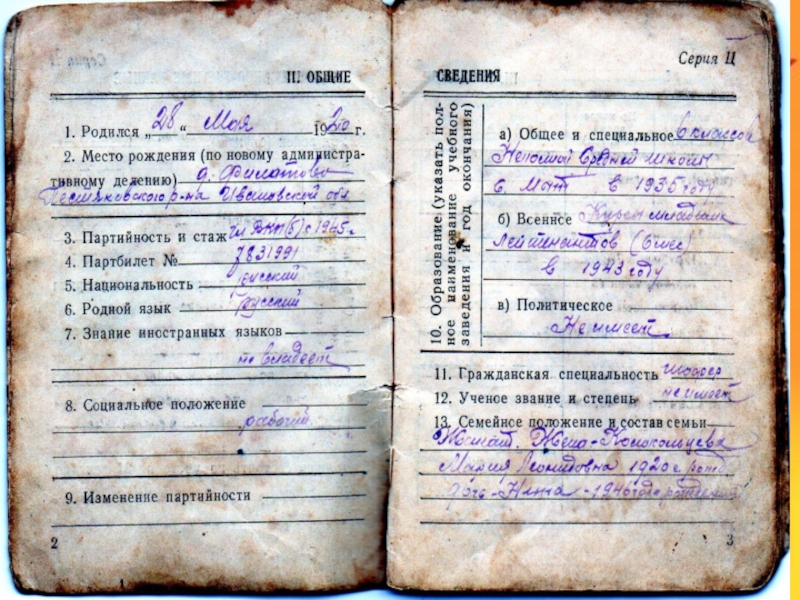 II. ОБЩИЕ
1. Родился „28“ Мая 1920 г.
2. Место рождения (по новому администра-
тивному делению) д. Филатово
Пестяковского р-на Ивановской обл
3. Партийность и стаж чл ВКП(б) с 1945 г
4. Партбилет № 7831991
5. Национальность русский
6. Родной язык русский
7. Знание иностранных языков
не владеет
8. Социальное положение
рабочий
9. Изменение партийности
2
Серия Ц
СВЕДЕНИЯ
10. Образование (указать пол-
ное наименование учебного
заведения и год окончания)
а) Общее и специальное 6 классов
Неполной Средней школы
с. Мыт в 1935 году
б) Военное Курсы младших
лейтенантов (6 мес)
в 1943 году
в) Политическое
Не имеет
11. Гражданская специальность шофер
12. Ученое звание и степень не имеет
13. Семейное положение и состав семьи
Женат. Жена - Колокольцева
Мария Леонидовна 1920 г рожд
дочь - Нина - 1946 года рождения
3